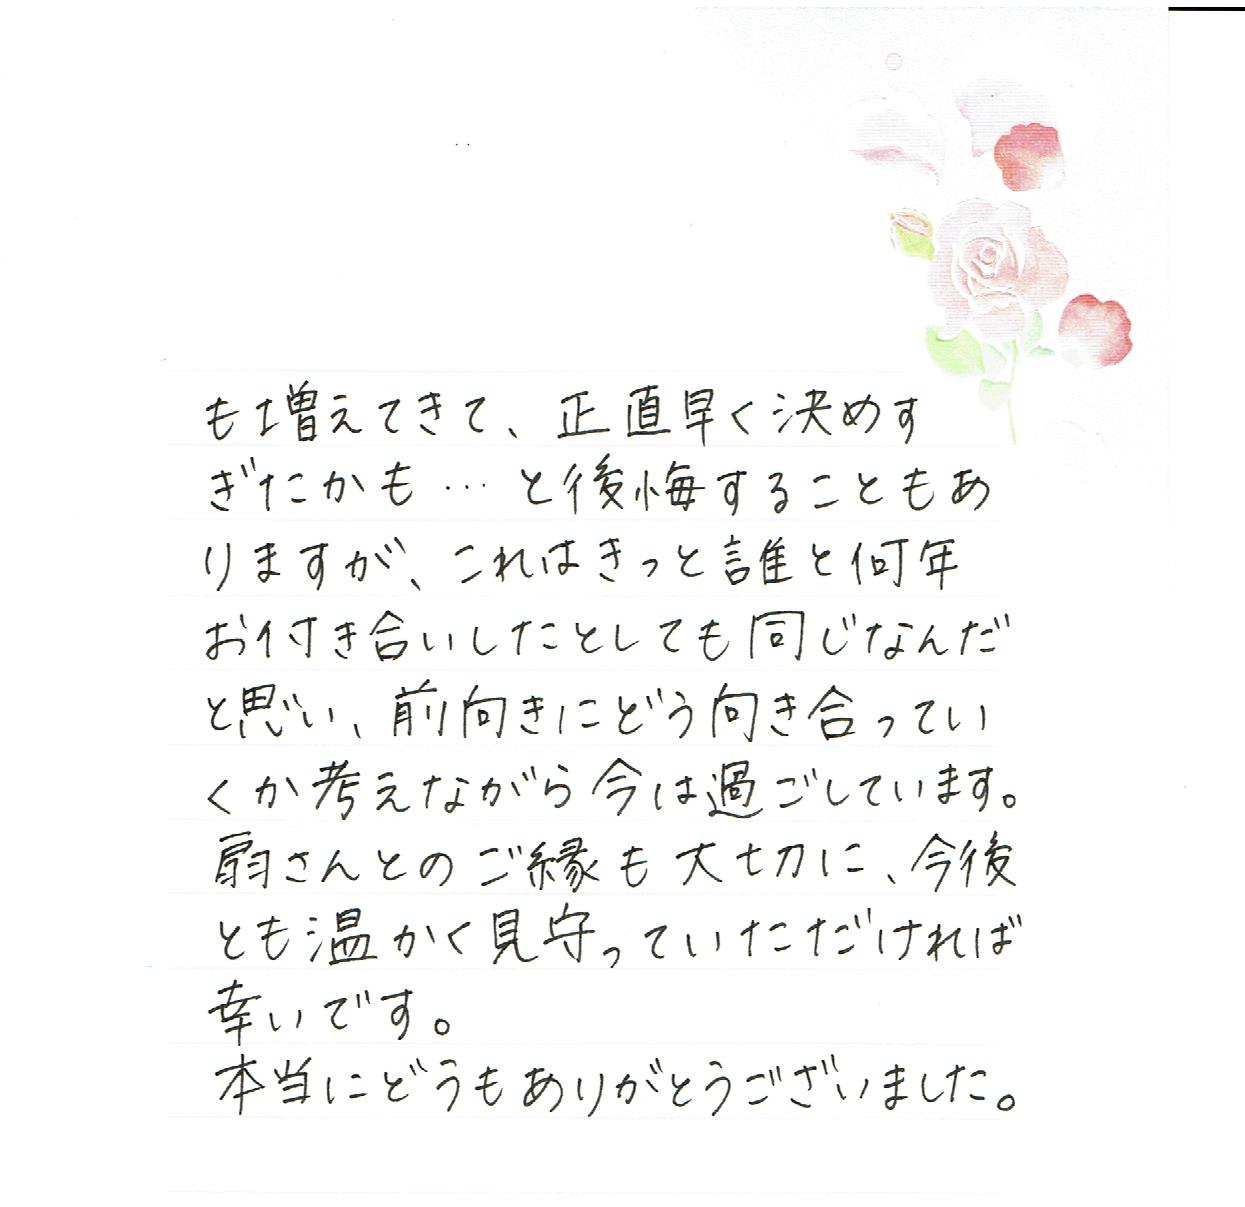 も増えてきて、正直早く決めす
ぎたかも…と後悔することもあ
りますが、これはきっと誰と何年
お付き合いしたとしても同じなんだ
と思い、前向きにどう向き合ってい
くか考えながら今は過ごしています。
扇さんとのご縁も大切に、今後
とも温かく見守っていただければ
幸いです。
本当にどうもありがとうございました。